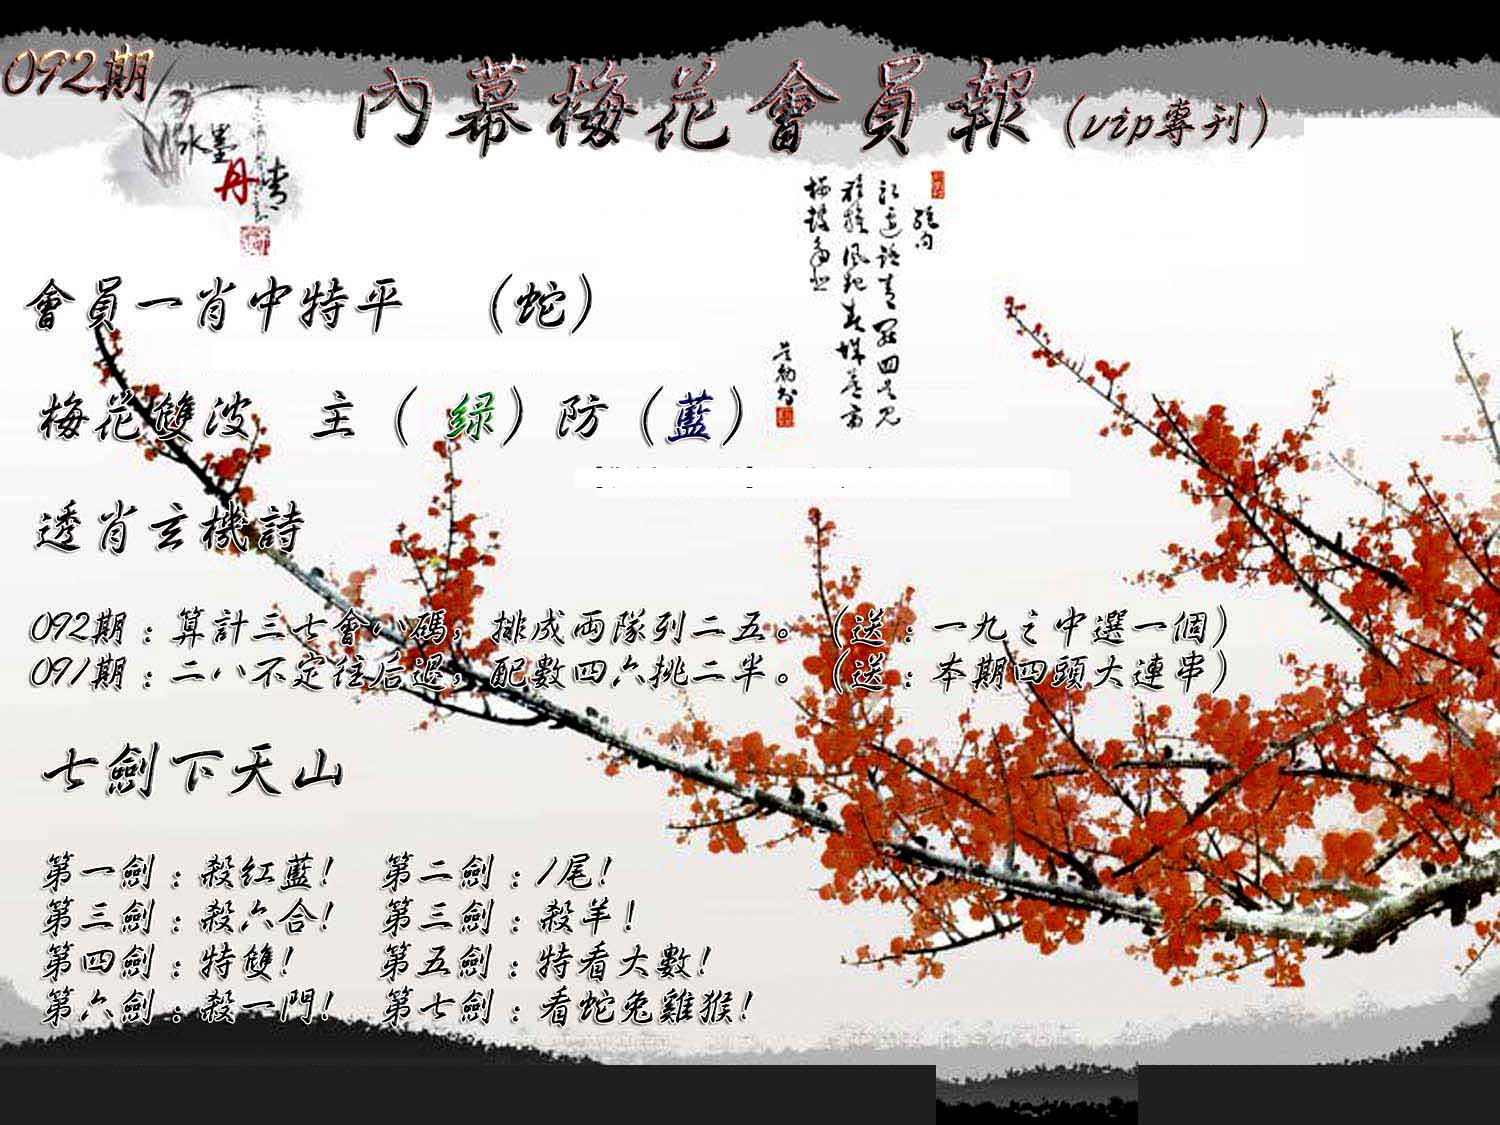 092期
內幕梅花會員報（vip專刊）
水墨
丹青
會員一肖中特平 （蛇）
梅花雙波 主（ 绿）防（藍）
透肖玄機詩
092期：算計三七會八碼，排成两隊列二五。（送：一九之中選一個）
091期：二八不定往后退，配數四六挑二半。（送：本期四頭大連串）
七劍下天山
第一劍：殺紅藍！ 第二劍：1尾！
第三劍：殺六合！ 第三劍：殺羊！
第四劍：特雙！ 第五劍：特看大數！
第六劍：殺一門！ 第七劍：看蛇兔雞猴！